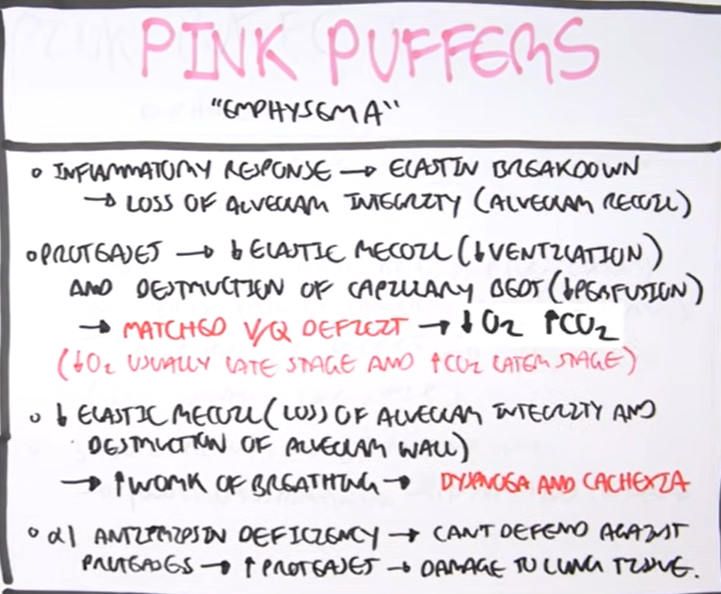 PINK PUFFERS
"EMPHYSEMA"
o INFLAMMATORY RESPONSE → ELASTIN BREAKDOWN
→ LOSS OF ALVEOLAR INTEGRITY (ALVEOLAR RECOIL)
o PROTEASES → ↓ ELASTIC RECOIL (↓VENTILATION)
AND DESTRUCTION OF CAPILLARY BEDS (↓PERFUSION)
→ MATCHED V/Q DEFICIT → ↓O₂ ↑CO₂
(↓O₂ USUALLY LATE STAGE AND ↑CO₂ LATER STAGE)
o ↓ ELASTIC RECOIL (LOSS OF ALVEOLAR INTEGRITY AND
DESTRUCTION OF ALVEOLAR WALL)
→ ↑WORK OF BREATHING → DYSPNOEA AND CACHEXIA
o α1 ANTITRYPSIN DEFICIENCY → CANT DEFEND AGAINST
PROTEASES → ↑ PROTEASES → DAMAGE TO LUNG TISSUE.